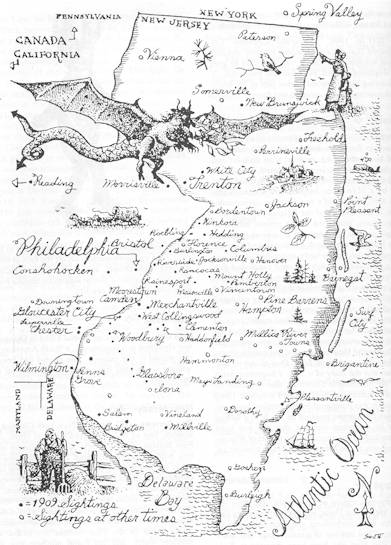 PENNSYLVANIA
NEW YORK
Spring Valley
NEW JERSEY
CANADA
CALIFORNIA
Paterson
Vienna
Somerville
New Brunswick
Freehold
Perrineville
White City
Trenton
Reading
Morrisville
Jackson
Bordentown
Point
Pleasant
Kinkora
Roebling
Hedding
Philadelphia
Bristol
Florence
Burlington
Columbus
Riverside
Jacksonville
Hanover
Conshohocken
Rancocas
Mount Holly
Barnegat
Hainesport
Pemberton
Moorestown
Vincentown
Downingtown
Camden
Merchantville
Pine Barrens
Gloucester City
West Collingswood
Hampton
Surf
City
Leiperville
Clementon
Chester
Woodbury
Haddonfield
Mullica River
Towns
Hammonton
Brigantine
Wilmington
Penns
Grove
Glassboro
Mays Landing
Iona
Pleasantville
MARYLAND
DELAWARE
Salem
Vineland
Dorothy
Bridgeton
Millville
Goshen
Delaware
Bay
Burleigh
Atlantic Ocean
N
• = 1909 sightings
o = sightings at other times